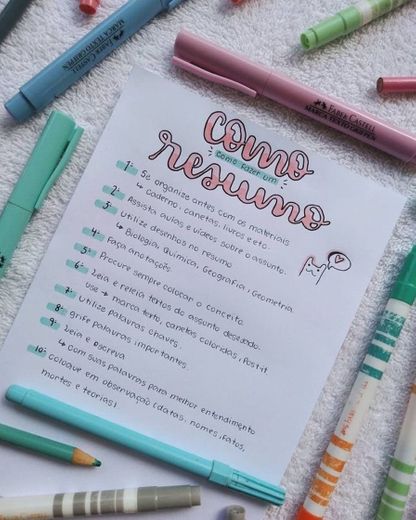 FABER-CASTELL
MARCA TEXTO GRIFPEN
FABER-CASTELL
MARCA TEXTO GRIFPEN
como
como fazer um
resumo
1º: Se organize antes com os materiais
↳ caderno, canetas, livros e etc.
2º: Assista aulas e vídeos sobre o assunto.
3º: Utilize desenhos no resumo
↳ Biologia, Química, Geografia, Geometria.
4º: Faça anotações.
5º: Procure sempre colocar o conceito.
6º: Leia e releia textos do assunto desejado.
Use → marca texto, canetas coloridas, Postit
7º: Utilize palavras chaves.
8º: grife palavras importantes.
9º: Leia e escreva
↳ com suas palavras para melhor entendimento
10º: Coloque em observação (datas, nomes, fatos,
montes e teorias).